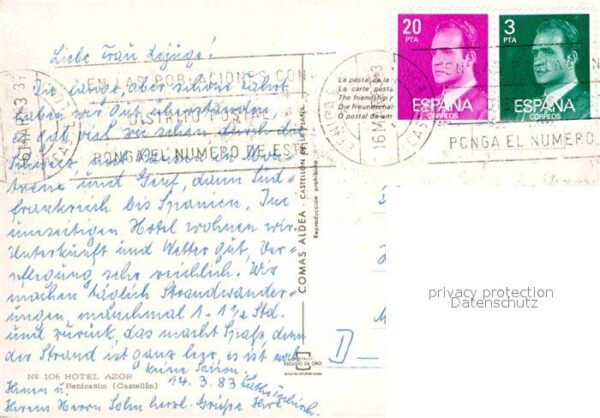 Liebe Frau
Die lange, aber schöne Fahrt
haben wir gut überstanden,
gut viel zu sehen durch die
Schweiz
und Genf, dann Süd-
frankreich bis Spanien. Im
umseitigen Hotel wohnen wir.
Unterkunft und Wetter gut, Ver-
pflegung sehr reichlich. Wir
machen täglich Strandwander-
ungen, manchmal 1 - 1 1/2 Std.
und zurück, das macht Spaß, denn
der Strand ist ganz leer, es ist noch
keine Saison
No 106 HOTEL AZOR
Benicasim (Castellón)
14.3.83
Ihnen u.
Ihrem Herrn Sohn herzl. Grüße Ihre
EN LAS POBLACIONES CON
DISTRITO POSTAL
PONGA EL NUMERO DE ESTE
COMAS ALDEA - CASTELLON DE LA PLANA
Reproducción prohibida
La postal de la
La carte posta
The friendship
Die Freundschaf
O postal da am
16 MAR 83
20
PTA
ESPAÑA
CORREOS
3
PTA
ESPAÑA
CORREOS
PONGA EL NUMERO
D
privacy protection
Datenschutz